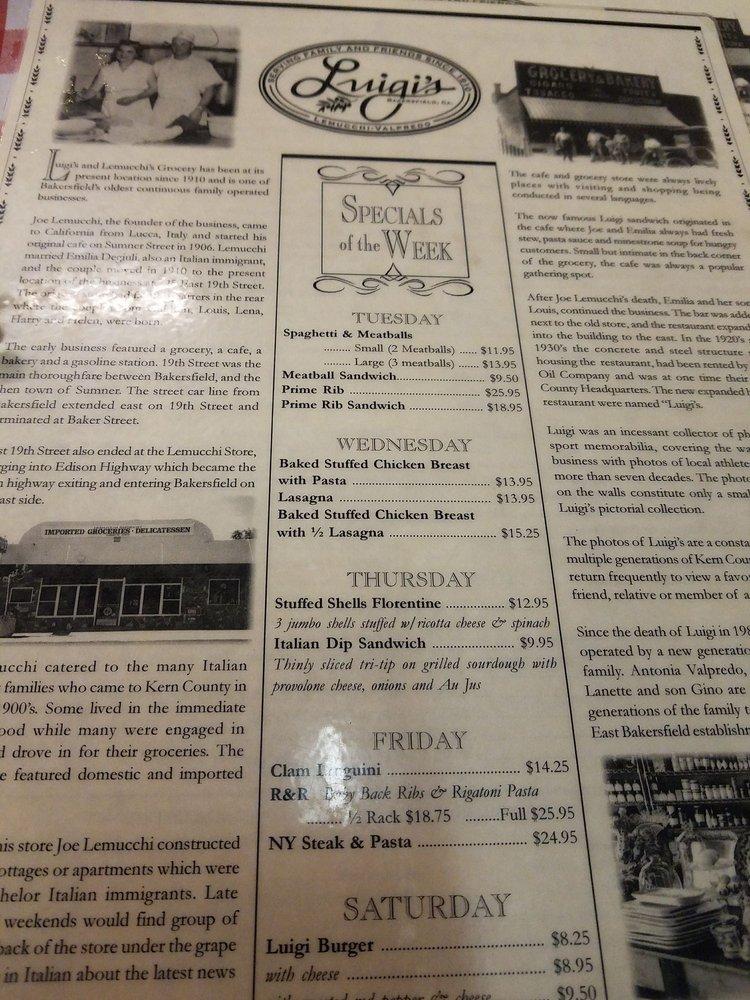 SERVING FAMILY AND FRIENDS SINCE 1910
Luigi's
BAKERSFIELD, CA.
LEMUCCHI-VALPREDO
GROCERY & BAKERY
CIGARS
TOBACCO
Luigi's and Lemucchi's Grocery has been at its
present location since 1910 and is one of
Bakersfield's oldest continuous family operated
businesses.
Joe Lemucchi, the founder of the business, came
to California from Lucca, Italy and started his
original cafe on Sumner Street in 1906. Lemucchi
married Emilia Degiuli, also an Italian immigrant,
and the couple moved in 1910 to the present
location of the business at East 19th Street.
The in the rear
where the Louis, Lena,
Harry and Helen, were born.
The early business featured a grocery, a cafe, a
bakery and a gasoline station. 19th Street was the
main thoroughfare between Bakersfield, and the
then town of Sumner. The street car line from
akersfield extended east on 19th Street and
rminated at Baker Street.
st 19th Street also ended at the Lemucchi Store,
rging into Edison Highway which became the
highway exiting and entering Bakersfield on
ast side.
IMPORTED GROCERIES - DELICATESSEN
ucchi catered to the many Italian
families who came to Kern County in
900's. Some lived in the immediate
ood while many were engaged in
d drove in for their groceries. The
e featured domestic and imported
his store Joe Lemucchi constructed
ottages or apartments which were
helor Italian immigrants. Late
weekends would find group of
back of the store under the grape
in Italian about the latest news
SPECIALS
of the WEEK
TUESDAY
Spaghetti & Meatballs
......... Small (2 Meatballs) ..... $11.95
......... Large (3 meatballs) ..... $13.95
Meatball Sandwich..................... $9.50
Prime Rib ................................. $25.95
Prime Rib Sandwich .................. $18.95
WEDNESDAY
Baked Stuffed Chicken Breast
with Pasta ................................ $13.95
Lasagna .................................... $13.95
Baked Stuffed Chicken Breast
with ½ Lasagna ......................... $15.25
THURSDAY
Stuffed Shells Florentine .............. $12.95
3 jumbo shells stuffed w/ricotta cheese & spinach
Italian Dip Sandwich .................... $9.95
Thinly sliced tri-tip on grilled sourdough with
provolone cheese, onions and Au Jus
FRIDAY
Clam Linguini ............................... $14.25
R&R Baby Back Ribs & Rigatoni Pasta
½ Rack $18.75 .........Full $25.95
NY Steak & Pasta ....................... $24.95
SATURDAY
Luigi Burger .............................. $8.25
with cheese ................................ $8.95
pepper & cheese ............ $9.50
The cafe and grocery store were always lively
places with visiting and shopping being
conducted in several languages.
The now famous Luigi sandwich originated in
the cafe where Joe and Emilia always had fresh
stew, pasta sauce and minestrone soup for hungry
customers. Small but intimate in the back corner
of the grocery, the cafe was always a popular
gathering spot.
After Joe Lemucchi's death, Emilia and her son
Louis, continued the business. The bar was added
next to the old store, and the restaurant expand
into the building to the east. In the 1920's
1930's the concrete and steel structure
housing the restaurant, had been rented by
Oil Company and was at one time their
County Headquarters. The new expanded b
restaurant were named "Luigi's.
Luigi was an incessant collector of ph
sport memorabilia, covering the wa
business with photos of local athlete
more than seven decades. The photo
on the walls constitute only a smal
Luigi's pictorial collection.
The photos of Luigi's are a consta
multiple generations of Kern Coun
return frequently to view a favo
friend, relative or member of a
Since the death of Luigi in 198
operated by a new generatio
family. Antonia Valpredo,
Lanette and son Gino are
generations of the family t
East Bakersfield establishm